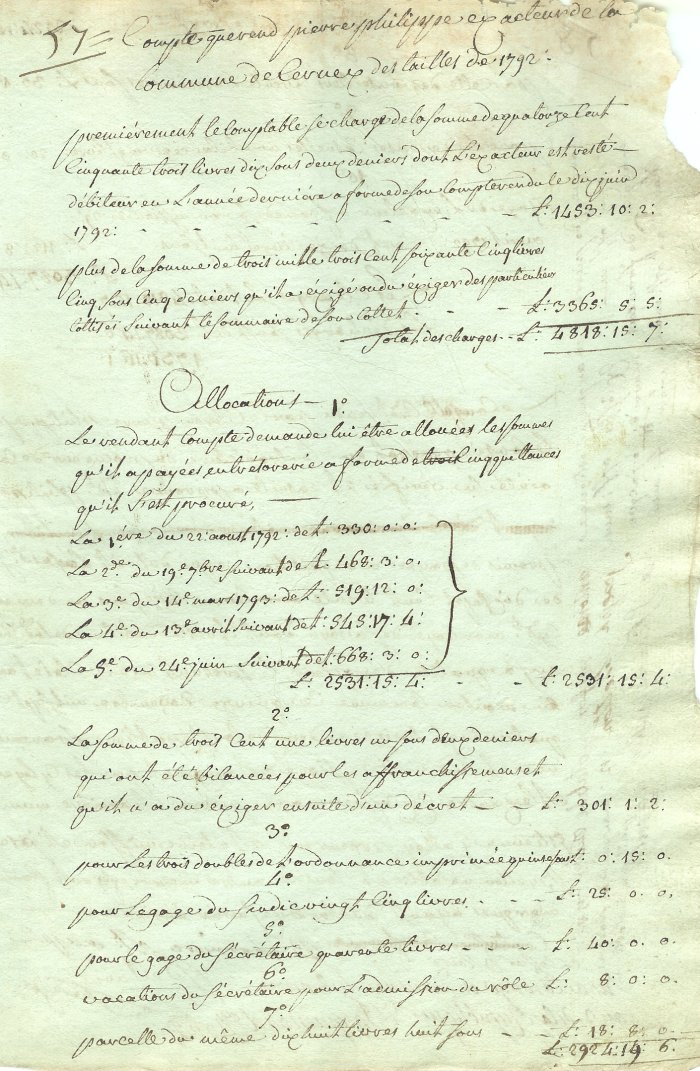 57= Compte que rend pierre philippe exacteur de la
Commune de Cernex des tailles de 1792:
premiérement le Comptable se charge de la somme de quatorze Cent
Cinquante trois livres dix sous deux deniers dont L'éxacteur est resté
débiteur en L'année derniére a forme de son Compte rendu le dix juin
1792: - - - - - - L: 1453: 10: 2:
plus de la somme de trois mille trois Cent soixante Cinq livres
Cinq sous Cinq deniers qu'il a exigé ou du éxiger des particulier
Cottisés Suivant le sommaire de son Cottet. - - L: 3365: 5: 5:
Total des charges - L: 4818: 15: 7:
Allocations — 1°
Le rendant Compte demande lui être allouées les sommes
qu'il a payées en trésorerie a forme de trois Cinq quittances
qu'il s'est procuré, —
La 1ére du 22: aout 1792: de L: 330: 0: 0:
La 2de du 19e 7bre suivant de L. 468: 3: 0.
La 3e du 14e mars 1793: de L: 519: 12: 0:
La 4e du 13e avril suivant de L: 545: 17: 4:
La 5e du 24e juin suivant de L: 668: 3: 0:
L: 2531: 15: 4: - - L: 2531: 15: 4:
2°
La somme de trois Cent une livres un sous deux deniers
qui ont été bilancées pour les affranchissement et
qu'il n'a du éxiger ensuite d'un décret - - L: 301: 1: 2:
3°
pour Les trois doubles de L'ordonnance imprimée quinse sous L: 0: 15: 0.
4°
pour Le gage du Sindic vingt Cinq livres - - L: 25: 0: 0.
5°
pour le gage du Sécrétaire quarente livres - - - L: 40: 0. 0.
6°
vacations du Sécrétaire pour L'admission du rôle L: 8: 0: 0.
7°
parcelle du même dix huit livres huit sous - - L: 18: 8: 0.
L: 2924: 14: 6.